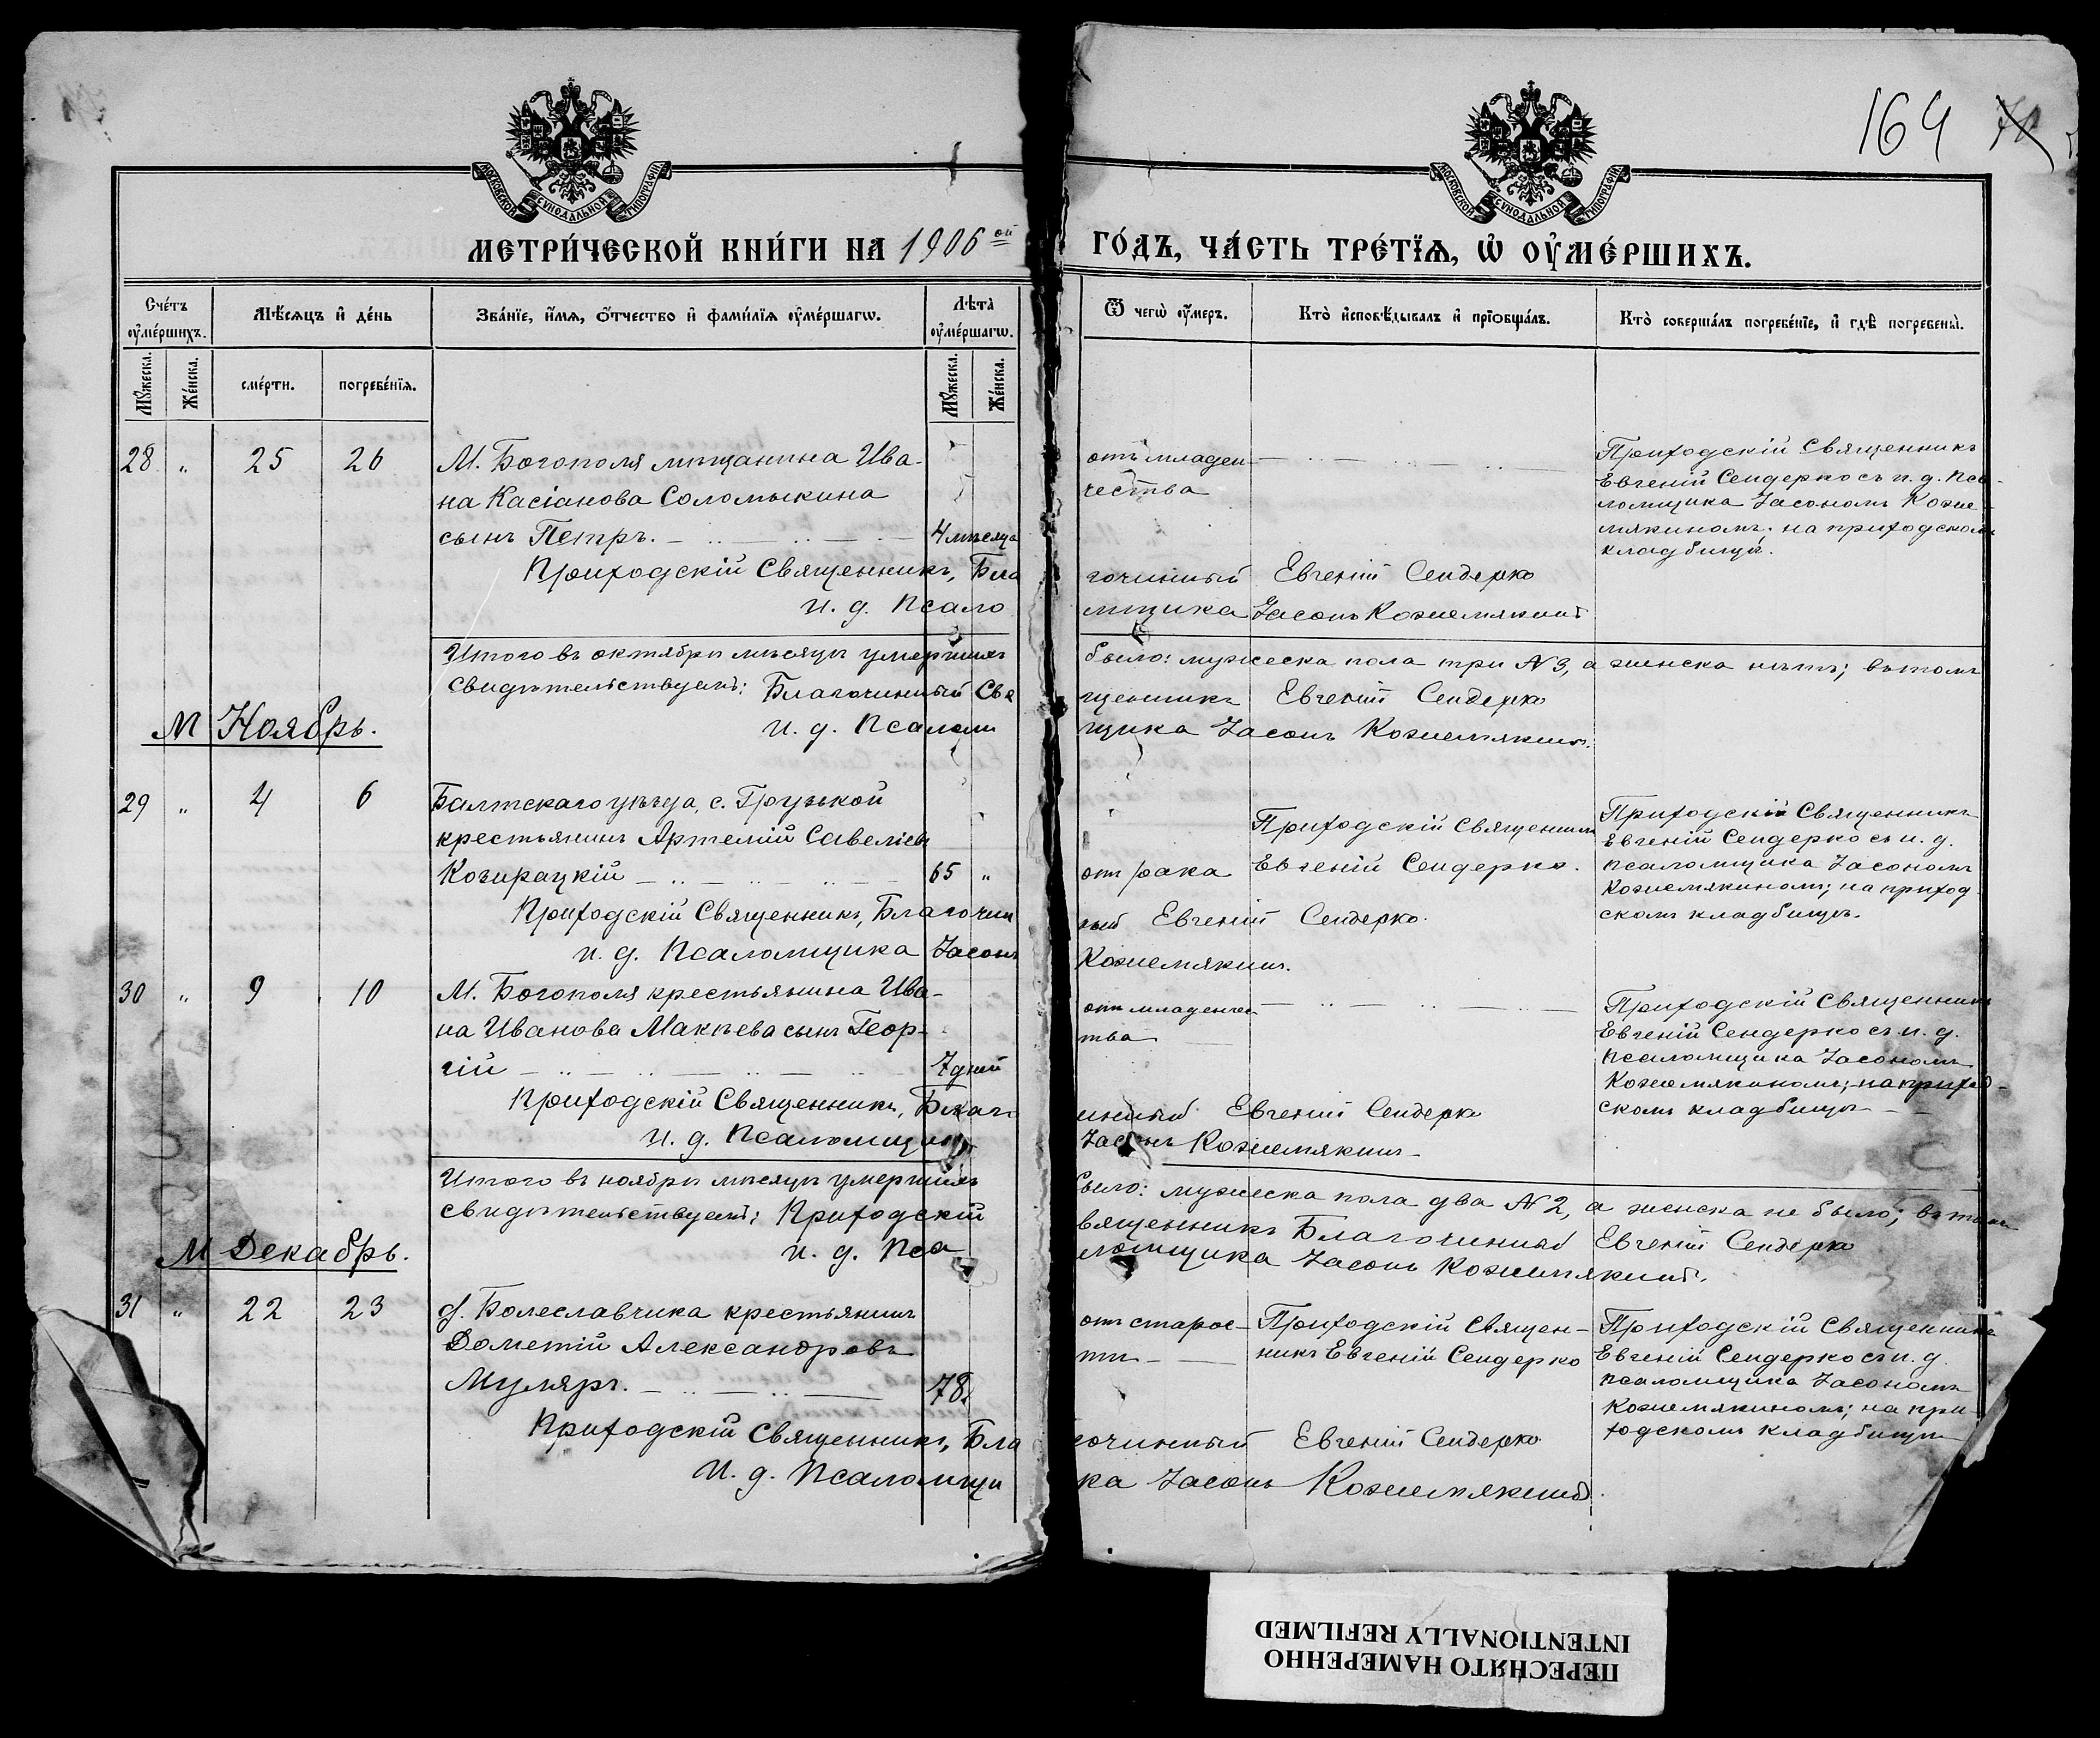 164
МОСКОВСКОЙ СѴНОДАЛЬНОЙ ТИПОГРАФІИ
МОСКОВСКОЙ СѴНОДАЛЬНОЙ ТИПОГРАФІИ
МЕТРИ́ЧЕСКОЙ КНИ́ГИ НА 1906ой ГО́ДЪ, ЧА́СТЬ ТРЕ́ТЇѦ, Ѡ҆ ОУ҆МЕ́РШИХЪ.
Сче́тъ оу҆ме́ршихъ.
Мѣ́сѧцъ и҆ де́нь
Зва́нїе, и҆́мѧ, ѻ҆́тчество и҆ фами́лїѧ оу҆ме́ршагѡ.
Лѣ́та оу҆ме́ршагѡ.
Ѿ чегѡ̀ оу҆́меръ.
Кто̀ и҆сповѣ́дывалъ и҆ прїѻбща́лъ.
Кто̀ соверша́лъ погребе́нїе, и҆ гдѣ̀ погребены̀.
Мꙋ́жеска.
Же́нска.
сме́рти.
погребе́нїѧ.
Мꙋ́жеска.
Же́нска.
28 " 25 26
М. Богополя мѣщанина Ива-
на Касіанова Соломыкина
сынъ Петръ. 4 мѣсяца
отъ младен-
чества
Приходскій Священникъ
Евгеній Сендерко съ и. д. Пса-
ломщика Іасономъ Коже-
мякиномъ; на приходскомъ
кладбищѣ.
Приходскій Священникъ, Благочинный Евгеній Сендерко
И. д. Псаломщика Іасонъ Кожемякинъ
Итого въ октябрѣ мѣсяцѣ умершихъ было: мужеска пола три №3, а женска нѣтъ; въ томъ
свидѣтельствуемъ: Благочинный Священникъ Евгеній Сендерко
И. д. Псаломщика Іасонъ Кожемякинъ.
М Ноябрь.
29 " 4 6
Балтскаго уѣзда, с. Грузькой
крестьянинъ Артемій Савеліевъ
Козирацкій 65 "
отъ рака
Приходскій Священникъ
Евгеній Сендерко.
Приходскій Священникъ
Евгеній Сендерко съ и. д.
псаломщика Іасономъ
Кожемякиномъ; на приход-
скомъ кладбищѣ.
Приходскій Священникъ, Благочинный Евгеній Сендерко.
и. д. Псаломщика Іасонъ Кожемякинъ.
30 " 9 10
М. Богополя крестьянина Ива-
на Иванова Макѣева сынъ Геор-
гій 7 дней
отъ младенчес-
тва
Приходскій Священникъ
Евгеній Сендерко съ и. д.
Псаломщика Іасономъ
Кожемякиномъ; на приход-
скомъ кладбищѣ
Приходскій Священникъ, Благочинный Евгеній Сендерко
И. д. Псаломщика Іасонъ Кожемякинъ
Итого въ ноябрѣ мѣсяцѣ умершихъ было: мужеска пола два №2, а женска не было; въ томъ
свидѣтельствуемъ: Приходскій Священникъ Благочинный Евгеній Сендерко
И. д. Псаломщика Іасонъ Кожемякинъ.
М Декабрь.
31 " 22 23
д. Болеславчика крестьянинъ
Дометій Александровъ
Муляръ. 78.
отъ старос-
ти
Приходскій Священ-
никъ Евгеній Сендерко
Приходскій Священникъ
Евгеній Сендерко съ и. д.
псаломщика Іасономъ
Кожемякиномъ; на при-
ходскомъ кладбищѣ
Приходскій Священникъ, Благочинный Евгеній Сендерко
И. д. Псаломщика Іасонъ Кожемякинъ.
ПЕРЕСНЯТО НАМЕРЕННО
INTENTIONALLY REFILMED